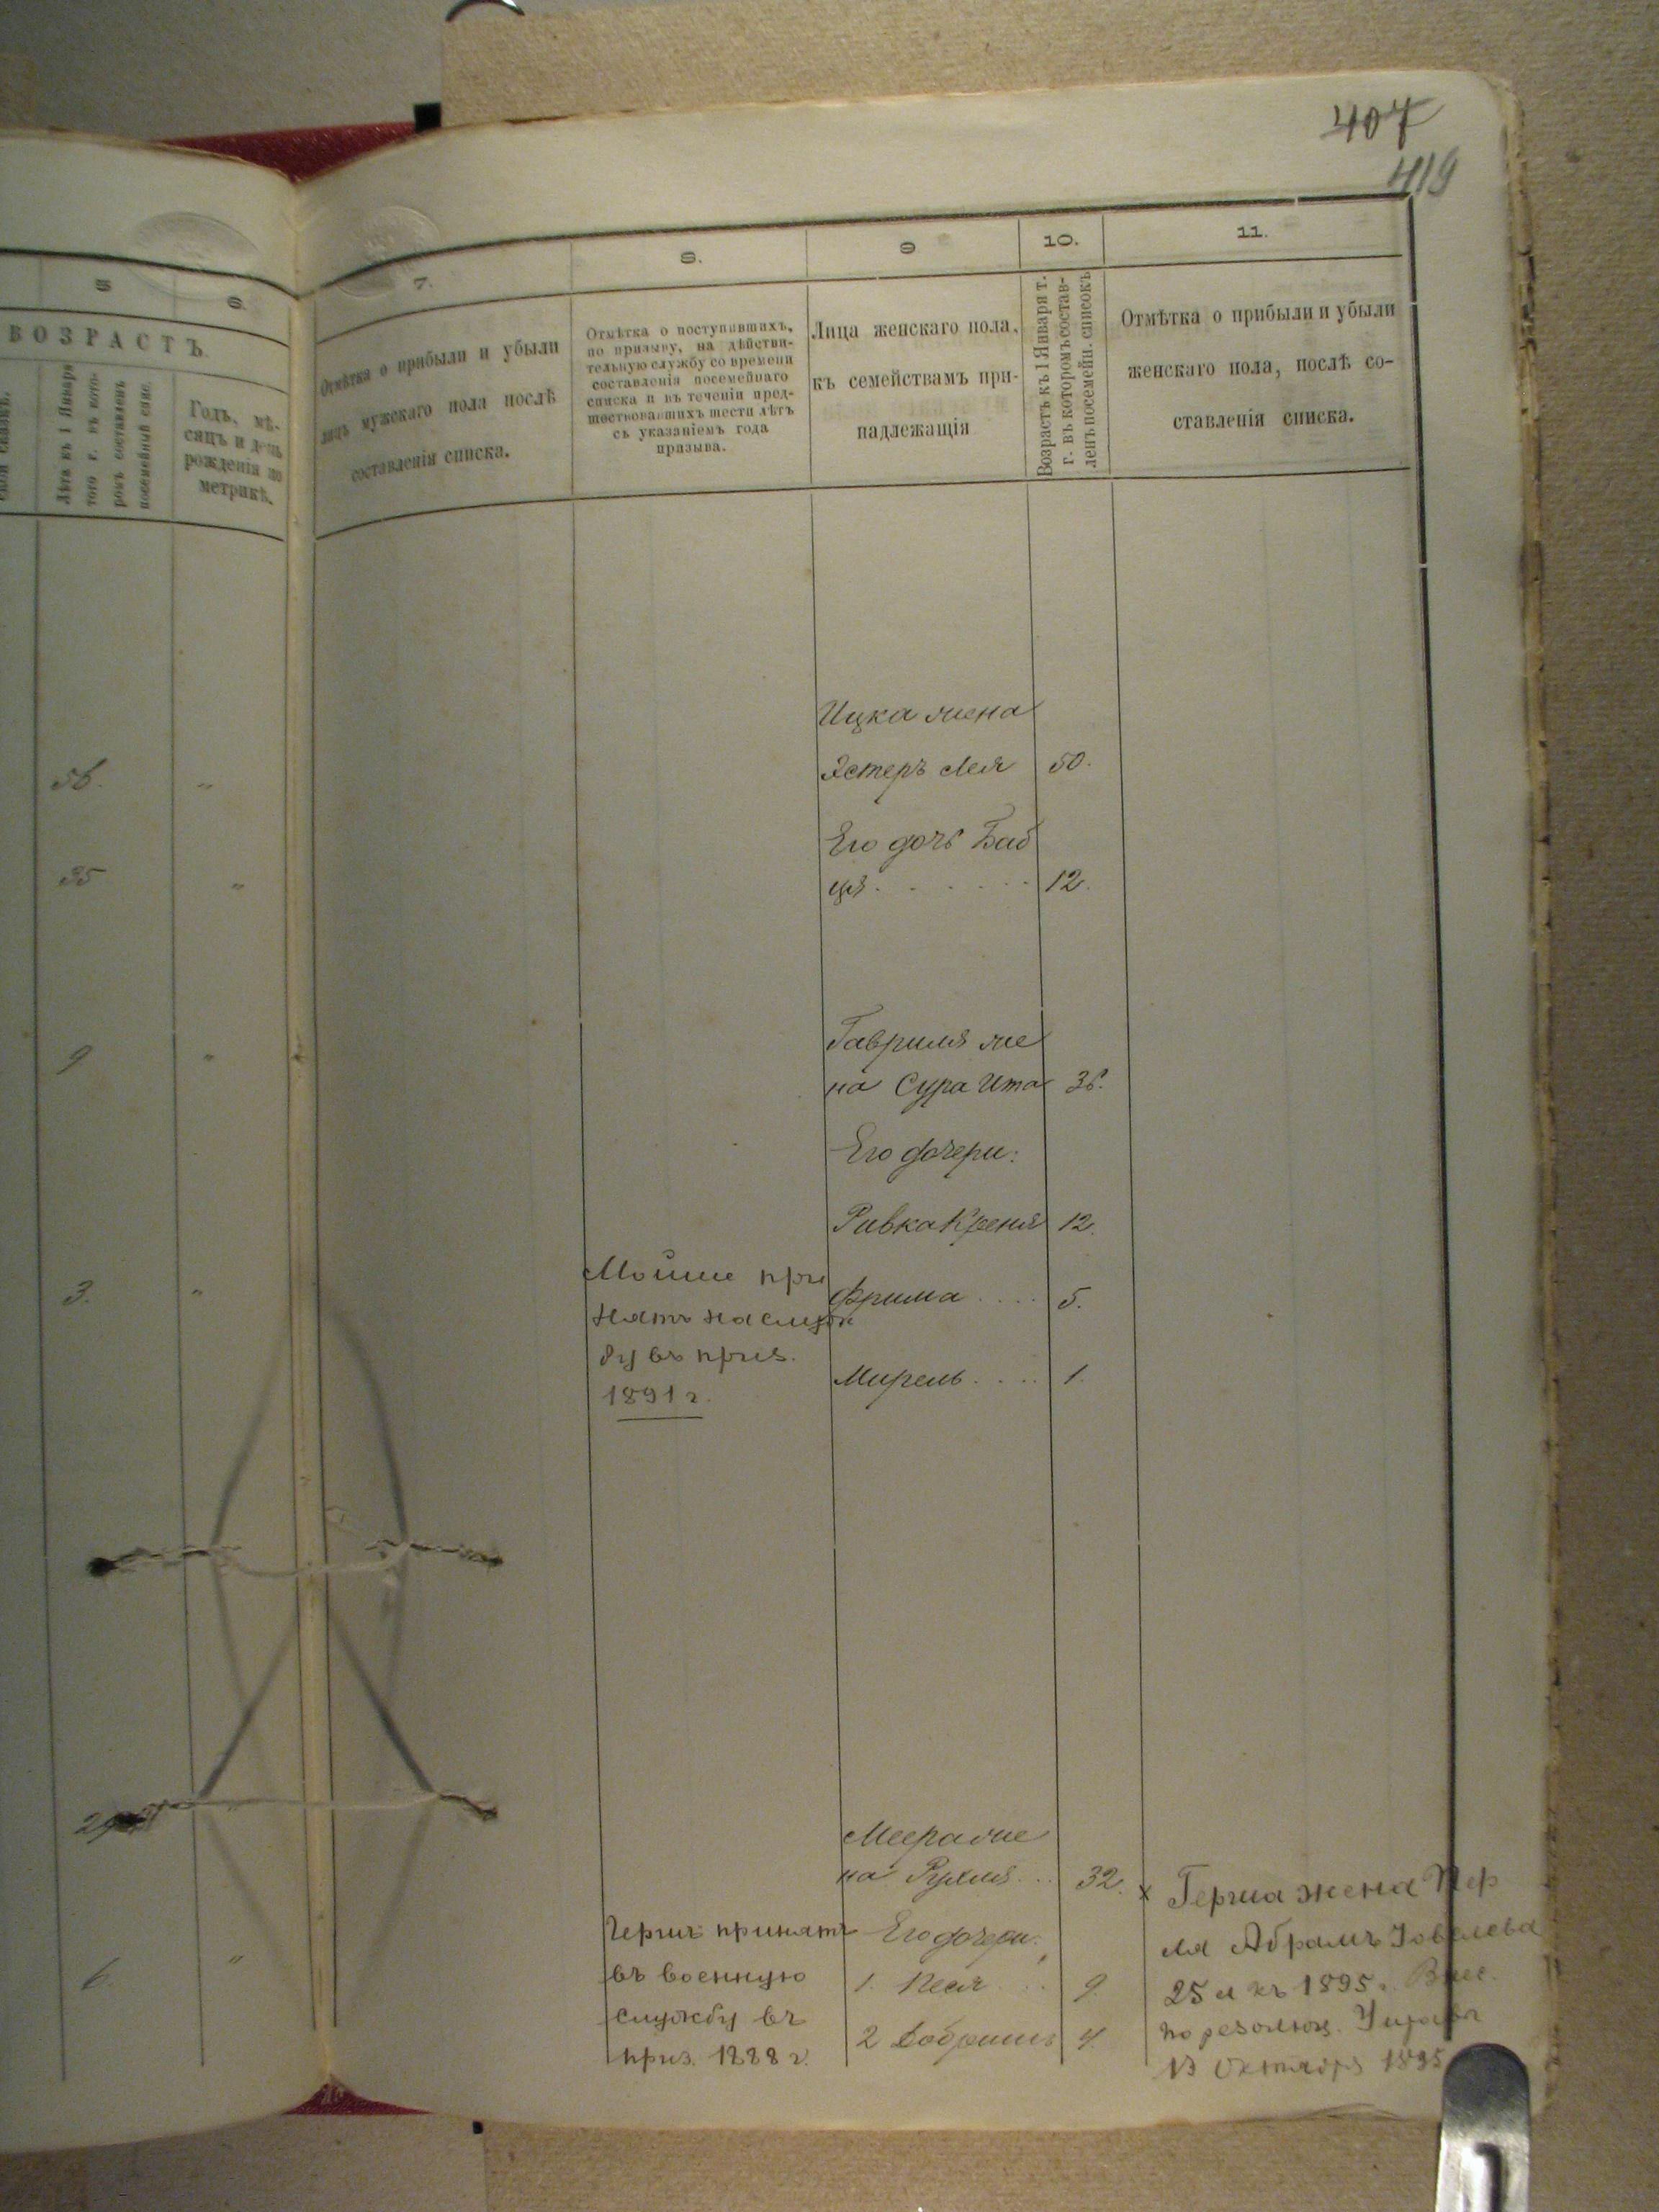 407
419
5
6.
ВОЗРАСТЪ.
Лѣта къ 1 Января
того г. въ кото-
ромъ составленъ
посемейный спис.
Годъ, мѣ-
сяцъ и день
рожденія по
метрикѣ.
7.
Отмѣтка о прибыли и убыли
лицъ мужскаго пола послѣ
составленія списка.
8.
Отмѣтка о поступившихъ,
по призыву, на дѣйстви-
тельную службу со времени
составленія посемейнаго
списка и въ теченіи пред-
шествовавшихъ шести лѣтъ
съ указаніемъ года
призыва.
9
Лица женскаго пола,
къ семействамъ при-
надлежащія
10.
Возрастъ къ 1 Января т.
г. въ которомъ состав-
ленъ посемейн. списокъ
11.
Отмѣтка о прибыли и убыли
женскаго пола, послѣ со-
ставленія списка.
Ицка жена
56. "
Эстеръ Лея 50.
Его дочь Баб
35 "
ця . . . . . 12.
Гавриля же
9 "
на Сура Ита 36.
Его дочери:
Ривка Креня 12.
3. "
Мойше при
нятъ на служ
бу въ приз.
1891 г.
Фрима . . . . 5.
Мирель . . . . 1.
29 "
Меера же
на Рухля . . . 32.
6. "
Гершъ принятъ
въ военную
службу въ
приз. 1888 г.
Его дочери:
1. Песя . . . 9.
2 Добришъ 4.
х Герша жена Пер
ля Абрамъ Іовелева
25 л къ 1895 г. Внес.
по резолюц. Управы
13 Октября 1895